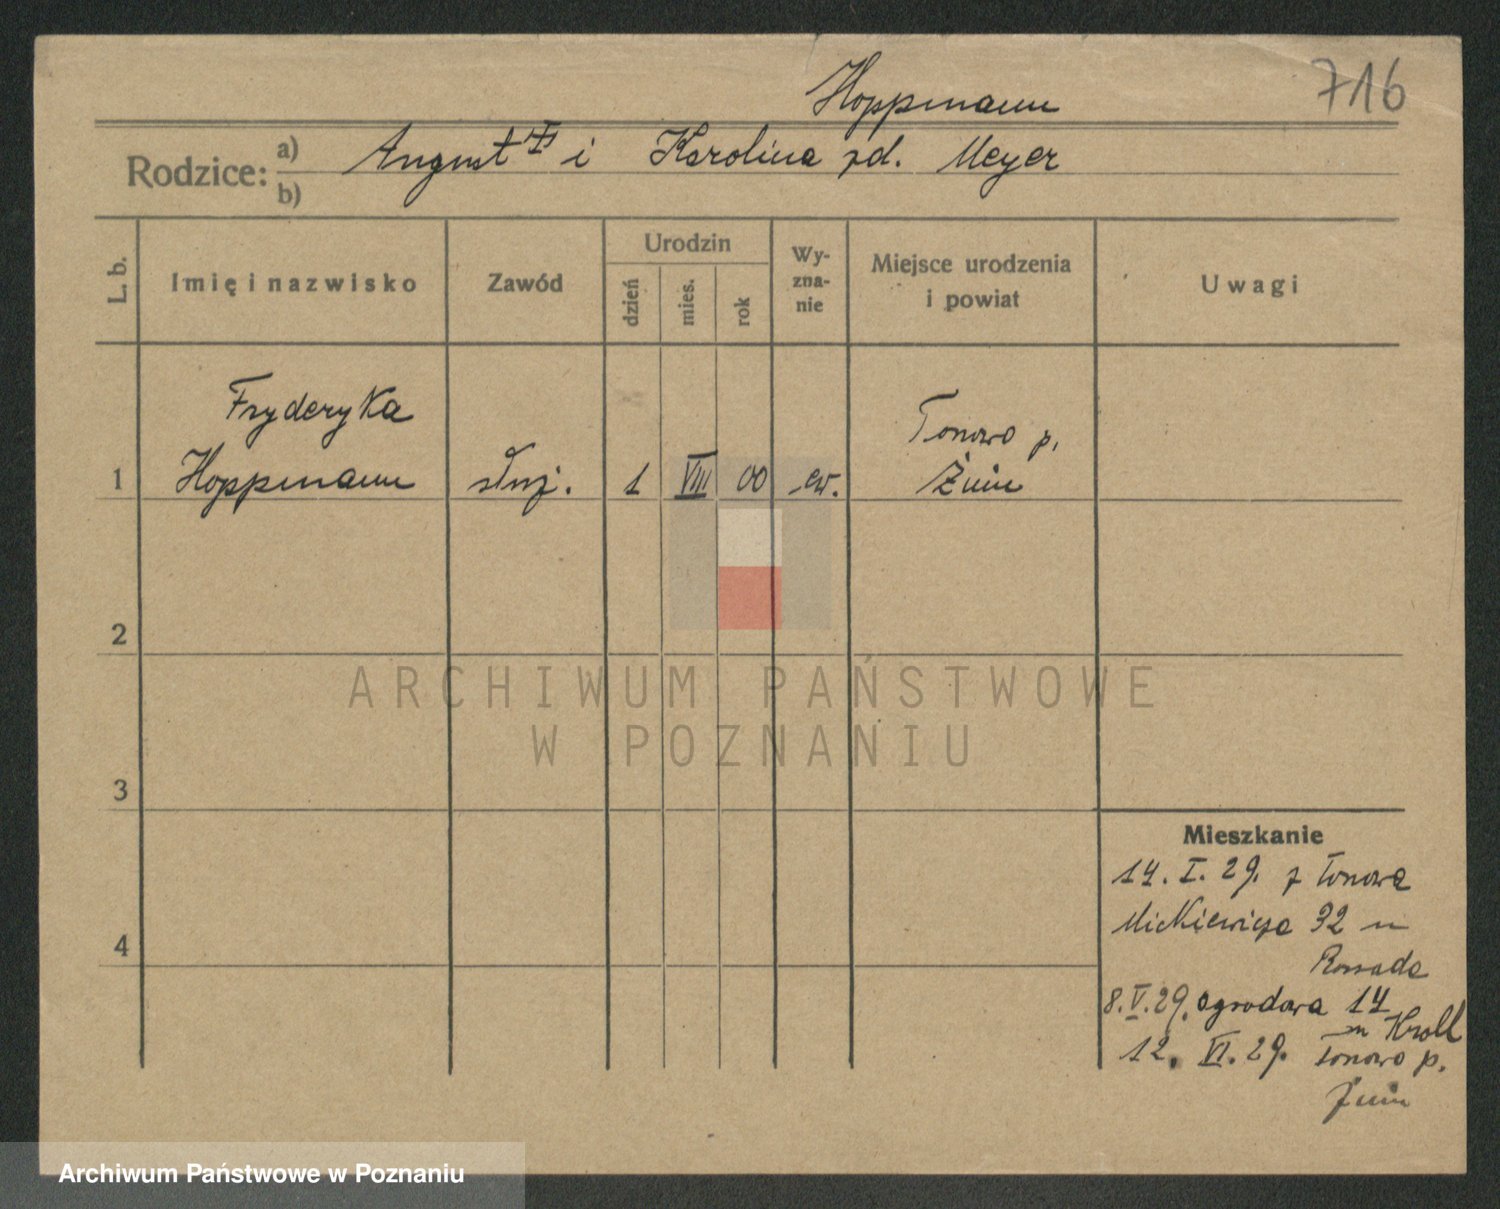 Hoppmann
716
Rodzice: a) August i Karolina zd. Meyer
b)
L. b.
Imię i nazwisko
Zawód
Urodzin
dzień
mies.
rok
Wy-
zna-
nie
Miejsce urodzenia
i powiat
Uwagi
Fryderyka
Tonowo p.
1 Hoppmann służ. 1 VIII 00 ew. Żnin
2
ARCHIWUM PAŃSTWOWE
W POZNANIU
3
Mieszkanie
14. I. 29. z Tonowa
Mickiewicza 32 u
4
8. V. 29. Ogrodowa 14
u Kroll
12. VI. 29. Tonowo p.
Żnin
Archiwum Państwowe w Poznaniu